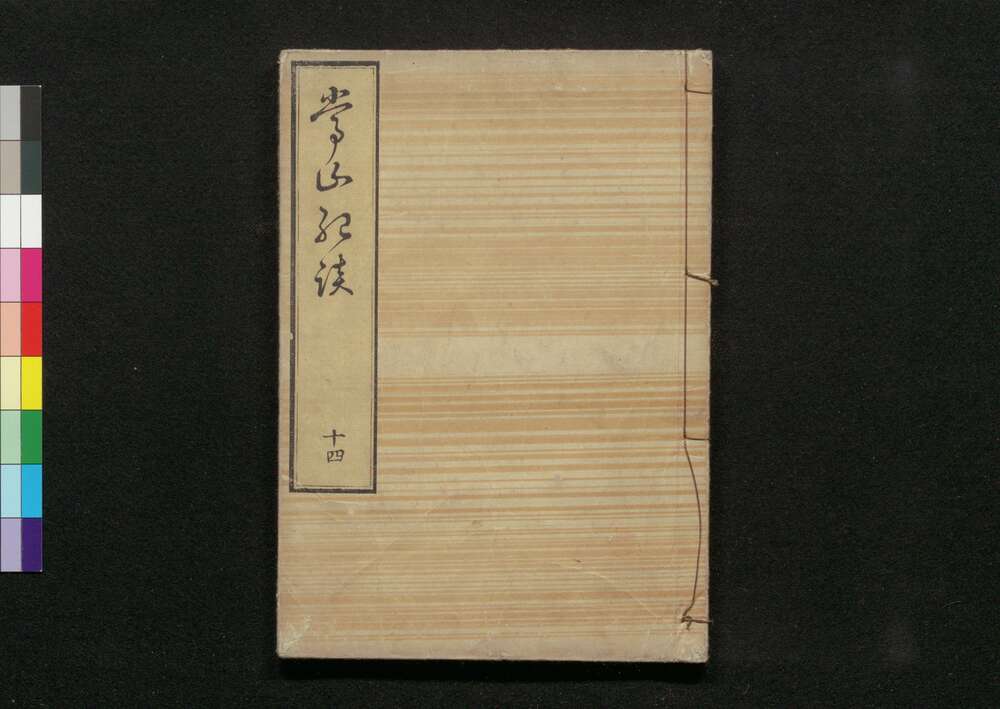 常山紀談
十四